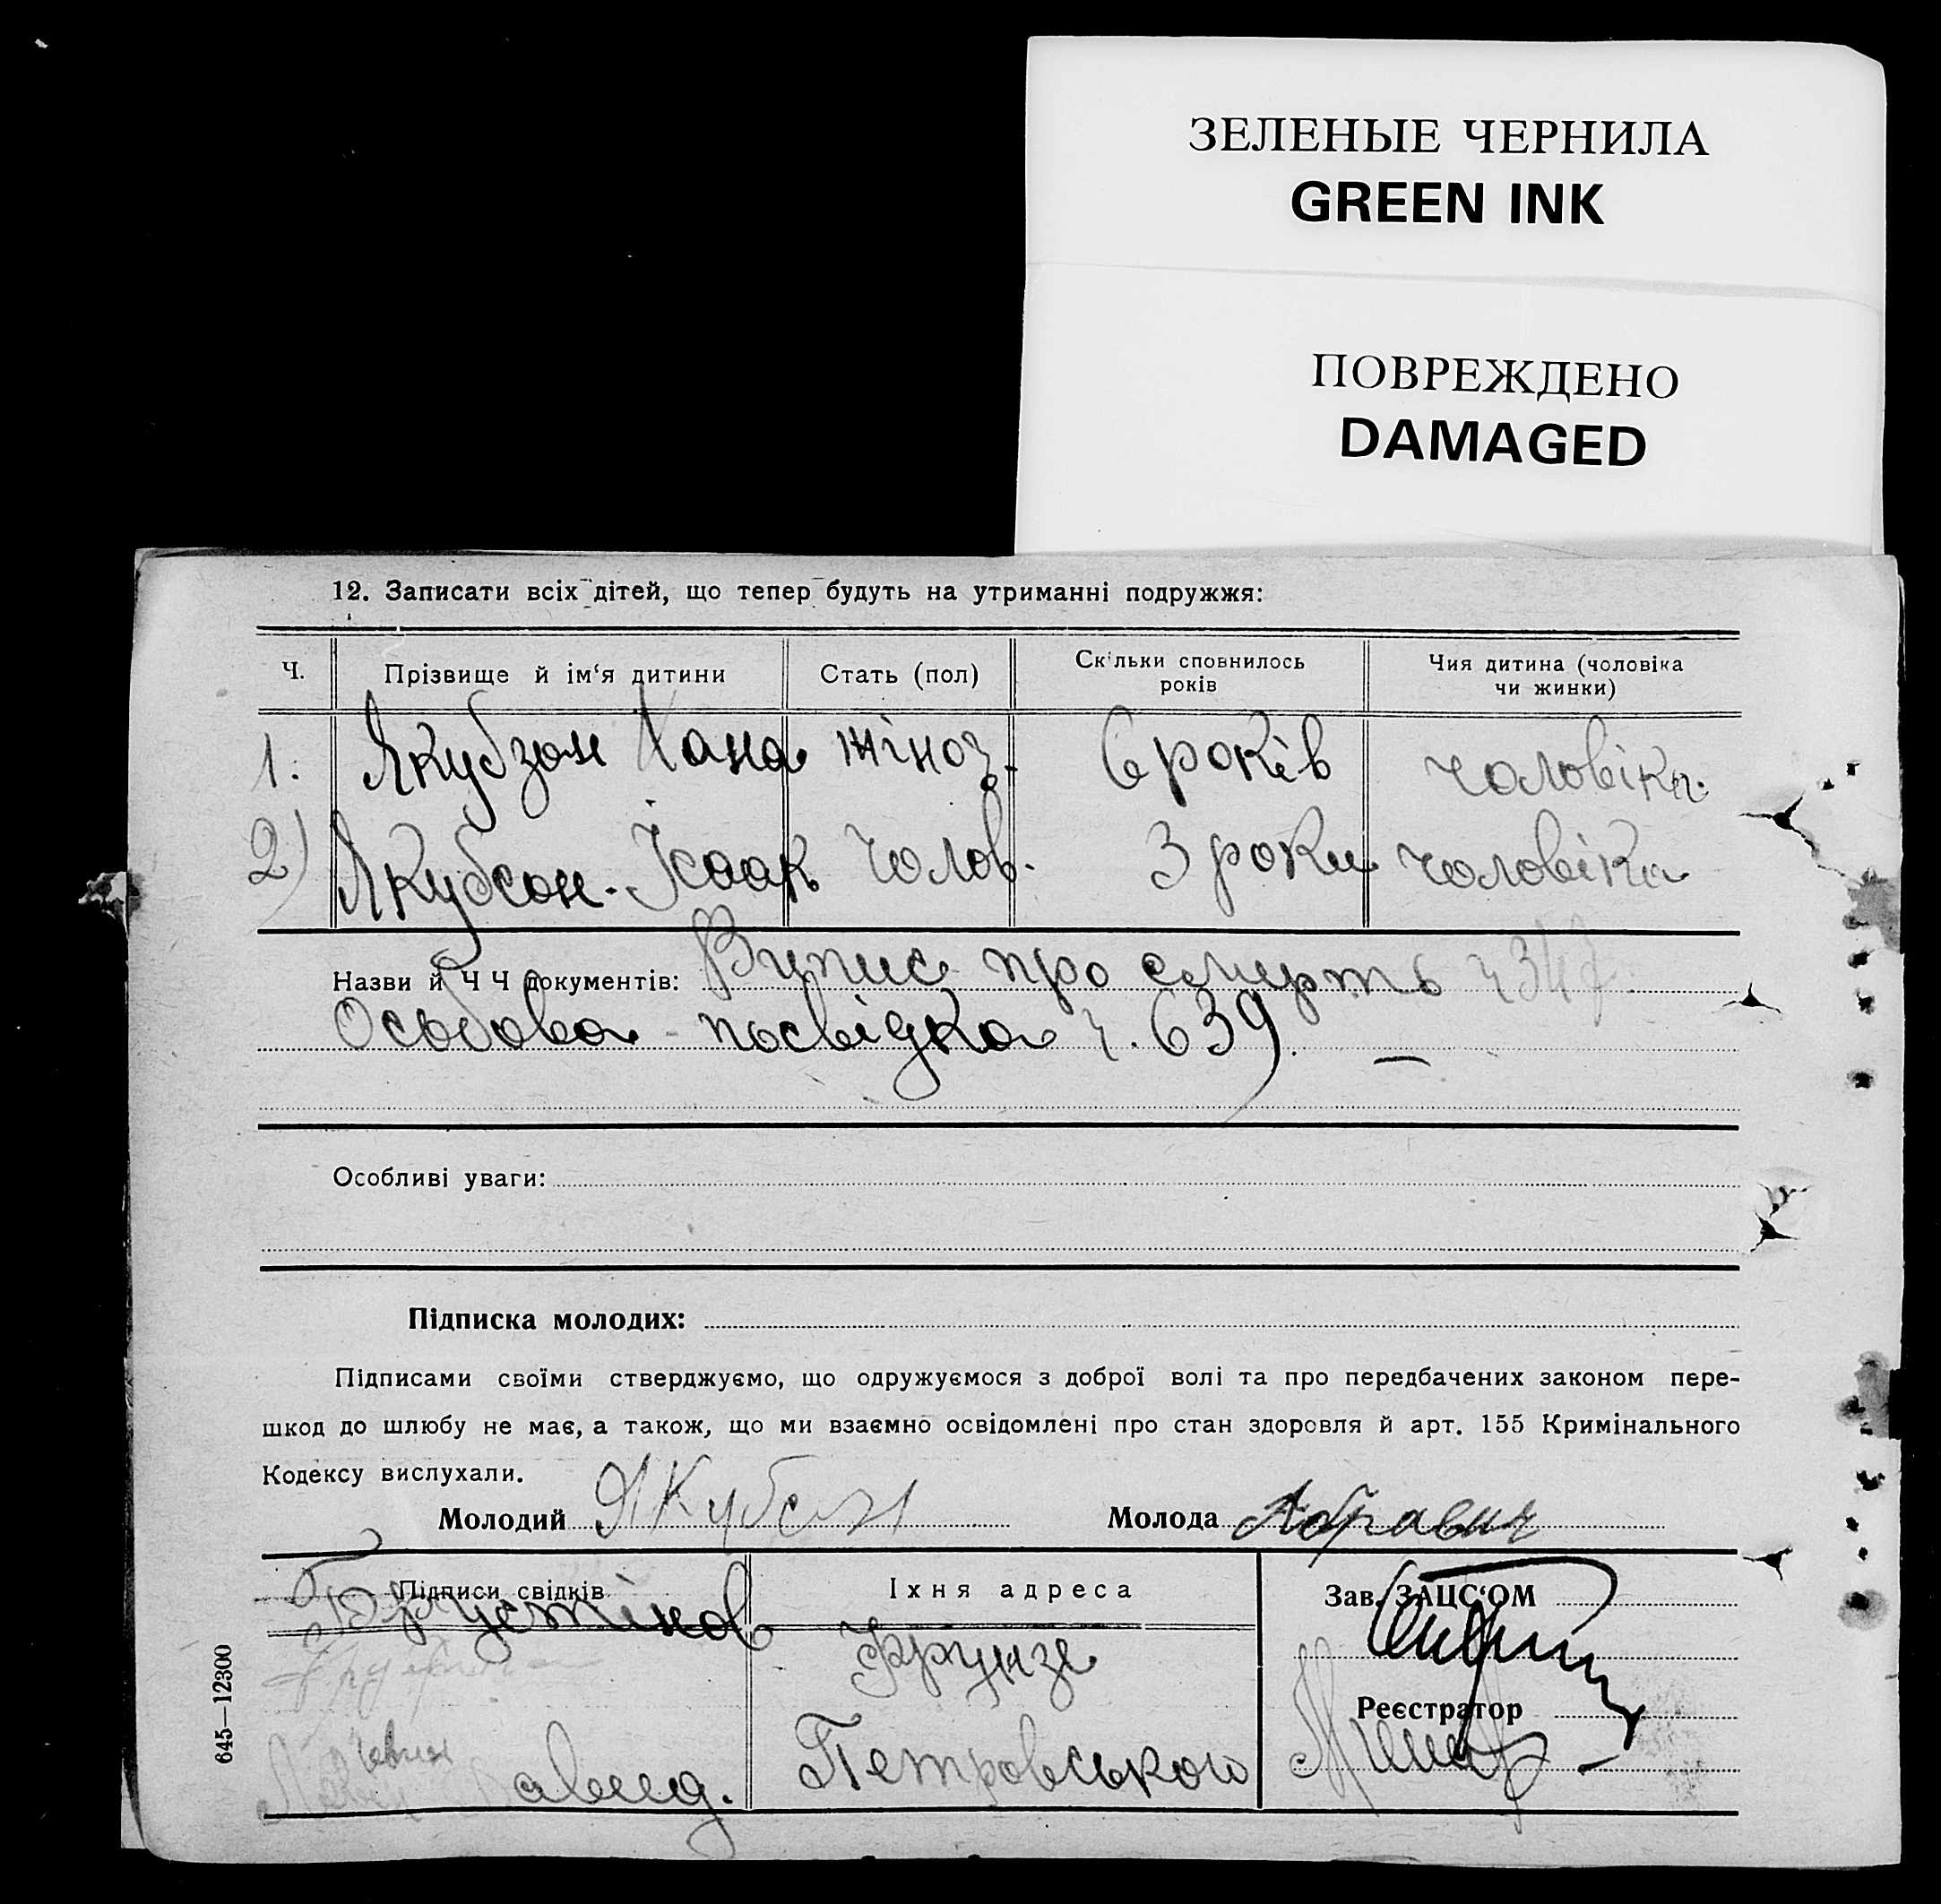 ЗЕЛЕНЫЕ ЧЕРНИЛА
GREEN INK
ПОВРЕЖДЕНО
DAMAGED
12. Записати всіх дітей, що тепер будуть на утриманні подружжя:
Ч. Прізвище й ім‘я дитини Стать (пол) Скільки сповнилось років Чия дитина (чоловіка чи жинки)
1. Якубзон Хана жіноч. 6 років чоловіка.
2) Якубсон Ісаак чолов. 3 роки чоловіка
Назви й Ч Ч документів: Випис про смерть ч 347
Особова посвідка ч. 639. —
Особливі уваги:
Підписка молодих:
Підписами своїми стверджуємо, що одружуємося з доброї волі та про передбачених законом пере-
шкод до шлюбу не має, а також, що ми взаємно освідомлені про стан здоровля й арт. 155 Кримінального
Кодексу вислухали.
Молодий Якубсон Молода Абравич
Підписи свідків Їхня адреса Зав. ЗАЦС‘ОМ
Фрунзе
Реєстратор
Петровського
645—12300